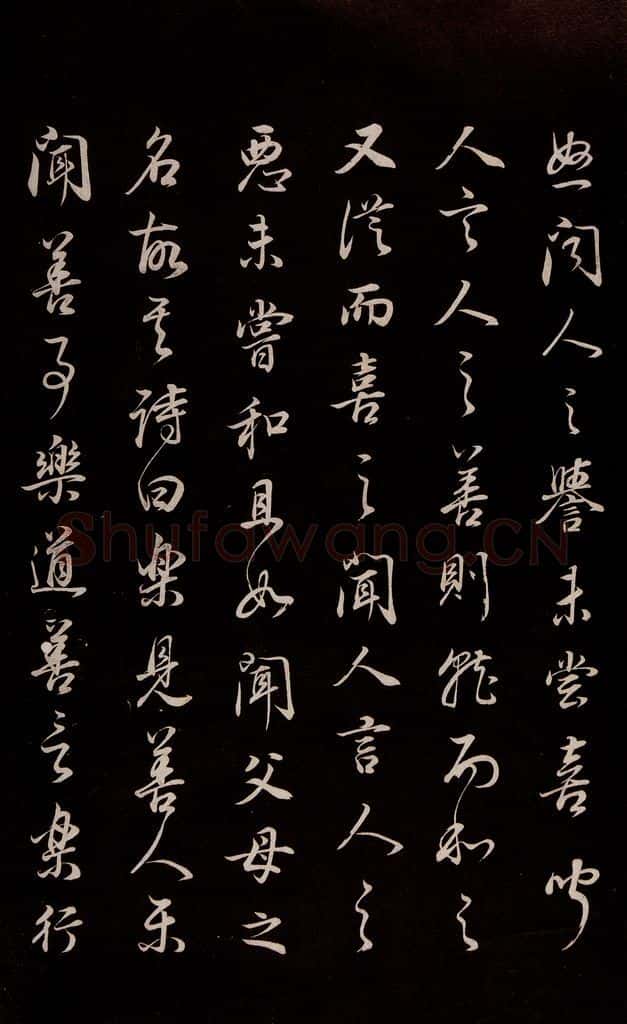 怒聞人之譽未嘗喜聞
人言人之善則就而和之
又從而喜之聞人言人之
惡未嘗和且如聞父母之
名故其詩曰樂見善人樂
聞善事樂道善言樂行
Shufawang.CN